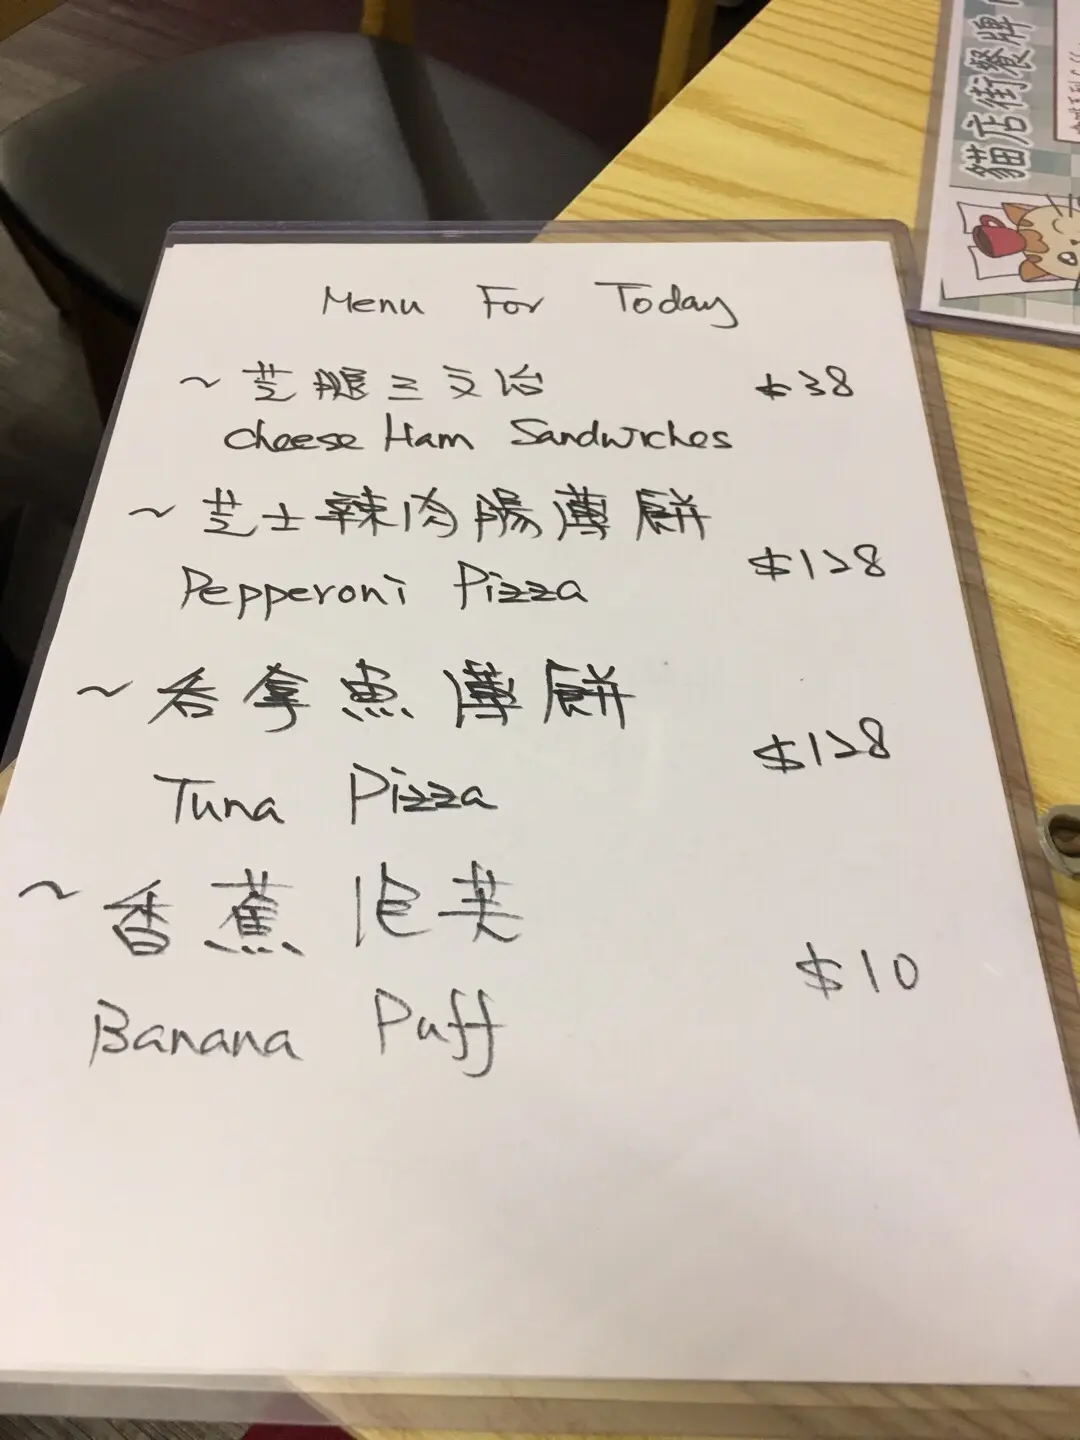 Menu For Today
~ 芝腿三文治 $38
Cheese Ham Sandwiches
~ 芝士辣肉腸薄餅
Pepperoni Pizza $128
~ 吞拿魚薄餅
Tuna Pizza $128
~ 香蕉泡芙
Banana Puff $10
貓店街餐牌